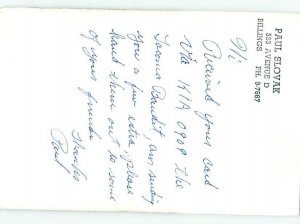 PAUL SLOVAK
523 AVENUE D
BILLINGS PH. 9-7667
Hi
Received your card
Via K1A 0909 the
Tacoma Bandit, am sending
you a few extra, please
hand them out to some
of your friends
Thanks
Paul